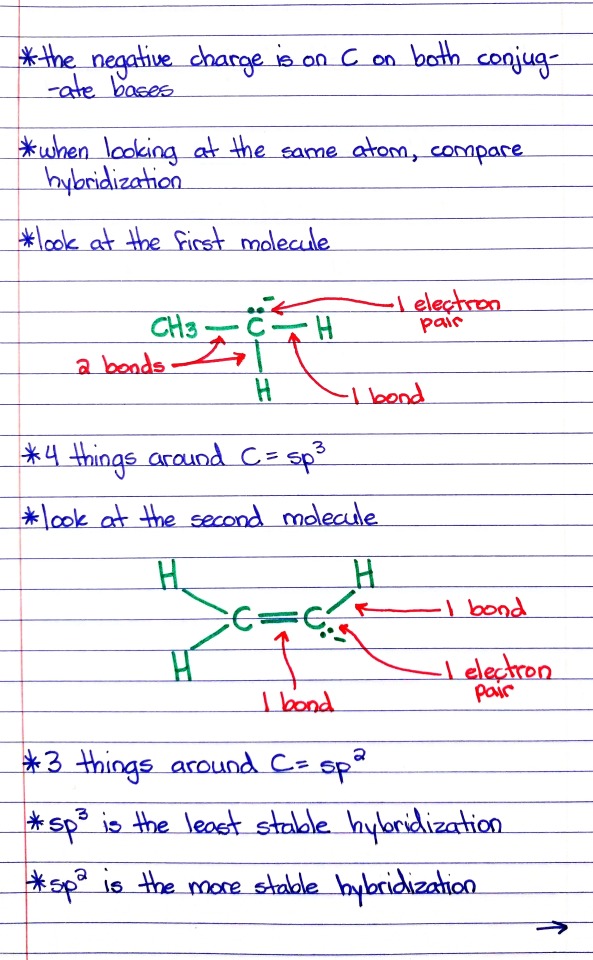 *the negative charge is on C on both conjug-
-ate bases
*when looking at the same atom, compare
hybridization
*look at the first molecule
1 electron
pair
CH3 — C̈⁻ — H
2 bonds
H
1 bond
*4 things around C = sp³
*look at the second molecule
H H
C = C
1 bond
H
1 electron
pair
1 bond
*3 things around C = sp²
*sp³ is the least stable hybridization
*sp² is the more stable hybridization
→